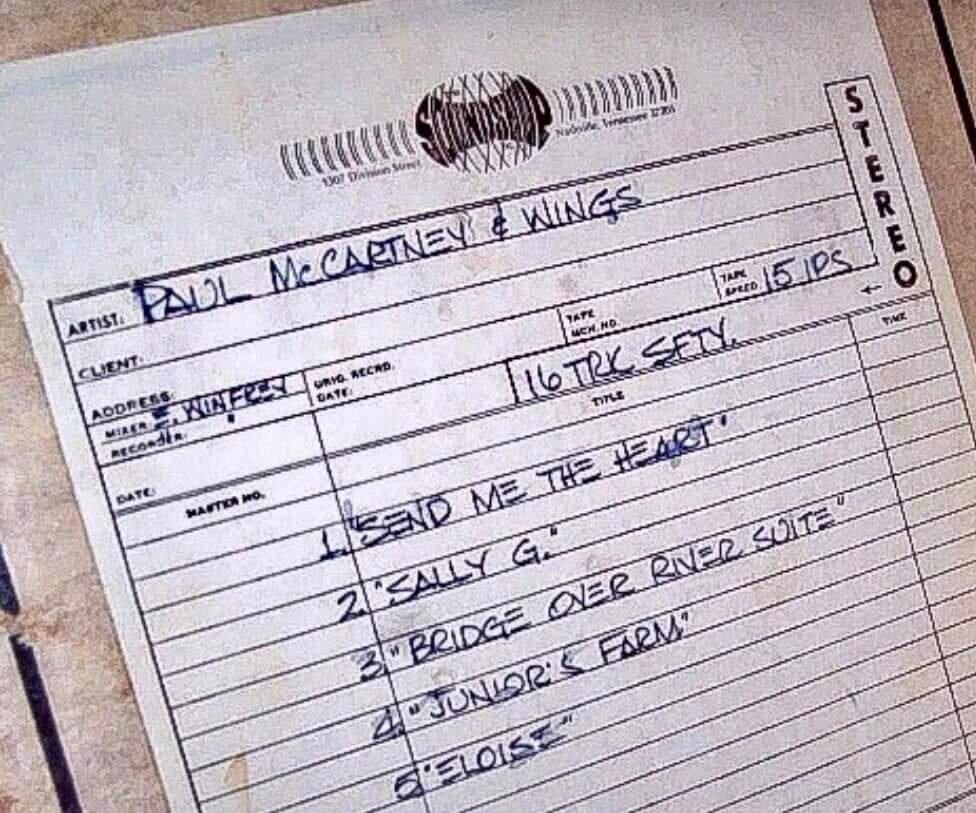 SOUNDSHOP
1307 Division Street
Nashville, Tennessee 37203
STEREO
ARTIST: PAUL McCARTNEY & WINGS
CLIENT:
ADDRESS:
MIXER E. WINFREY
RECORDER:
ORIG. RECRD. DATE:
TAPE MCH. NO.
TAPE SPEED 15 IPS
16 TRK SFTY.
DATE:
MASTER NO. TITLE TIME
1. "SEND ME THE HEART"
2. "SALLY G."
3. "BRIDGE OVER RIVER SUITE"
4. "JUNIOR'S FARM"
5. "ELOISE"